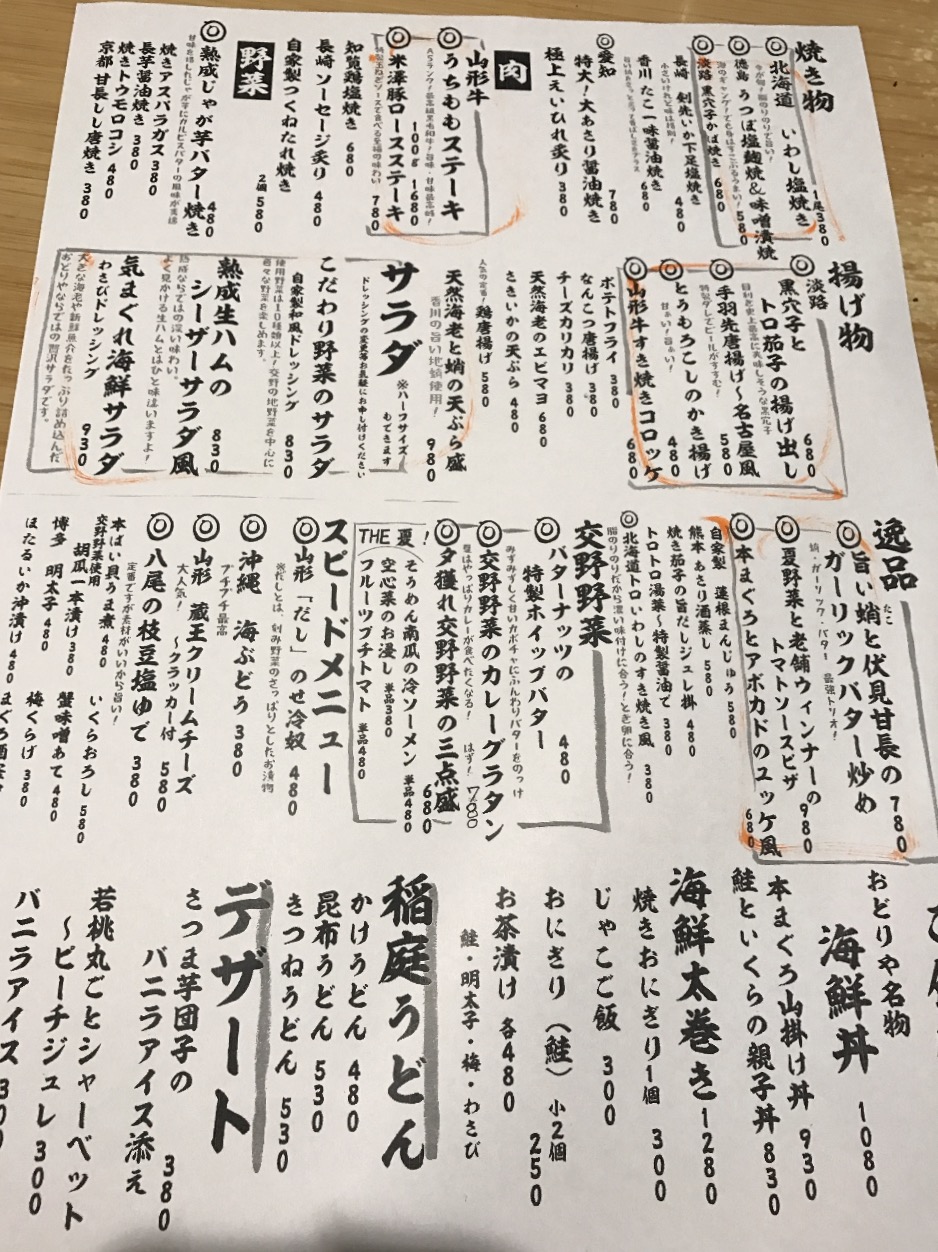 焼き物
◎北海道 いわし塩焼き 1尾380
◎徳島 うつぼ塩麹焼&味噌漬焼 580
◎淡路 黒穴子かば焼き 680
長崎 剣先いか下足塩焼き 480
香川 たこ一味醤油焼き 680
◎愛知 特大!大あさり醤油焼き 780
極上えいひれ炙り 380
肉
山形牛
◎うちももステーキ
100g 1680
◎米澤豚ロースステーキ 780
知覧鶏塩焼き 680
長崎 ソーセージ炙り 480
自家製つくねたれ焼き
2個 580
野菜
◎熟成じゃが芋バター焼き 480
焼きアスパラガス 380
長芋醤油焼き 380
焼きトウモロコシ 480
京都 甘長しし唐焼き 380
揚げ物
◎淡路
黒穴子と
トロ茄子の揚げ出し 680
◎手羽先唐揚げ〜名古屋風 580
◎とうもろこしのかき揚げ 480
甘ぁい!旨ぁい!
◎山形牛すき焼きコロッケ 680
ポテトフライ 380
なんこつ唐揚げ 380
チーズカリカリ 380
天然海老のエビマヨ 680
さきいかの天ぷら 480
人気の定番!鶏唐揚げ 580
天然海老と蛸の天ぷら盛 980
香川の旨い地蛸使用!
サラダ
※ハーフサイズもできます
ドレッシングの変更等お気軽にお申し付けください
こだわり野菜のサラダ
自家製和風ドレッシング 830
使用野菜は10種類以上!交野の地野菜を中心に
色々な野菜を楽しめます。
熟成生ハムの
シーザーサラダ風 830
熟成ならではの深い味わい。
よく見かける生ハムとはひと味違いますよ!
気まぐれ海鮮サラダ
わさびドレッシング 930
大きな海老や新鮮魚介をたっぷり詰め込んだ
おどりやならではの贅沢サラダです。
逸品
◎旨い蛸と伏見甘長の
ガーリックバター炒め 780
蛸・ガーリック・バター 最強トリオ!
◎夏野菜と老舗ウィンナーの
トマトソースピザ 980
◎本まぐろとアボカドのユッケ風 680
自家製 蓮根まんじゅう 580
熊本 あさり酒蒸し 580
焼き茄子の旨だしジュレ掛 480
トロトロ湯葉〜特製醤油で 480
◎北海道トロいわしのすき焼き風 380
脂のりのりだから濃い味付けに合う!とき卵に合う!
交野野菜
◎バターナッツの
特製ホイップバター 480
みずみずしく甘いカボチャにふんわりバターをのっけ
◎交野野菜のカレーグラタン 780
夏はやっぱりカレーが食べたくなる! はず!
◎夕獲れ交野野菜の三点盛 680
THE 夏!
そうめん南瓜の冷ソーメン 単品480
空心菜のお浸し 単品380
フルーツプチトマト 単品480
スピードメニュー
◎山形「だし」のせ冷奴 480
※だしとは、刻み野菜のさっぱりとしたお漬物
◎沖縄 海ぶどう 380
プチプチ最高
◎山形 蔵王クリームチーズ
〜クラッカー付 580
大人気!
◎八尾の枝豆塩ゆで 380
定番ですが素材がいいから旨い!
本ばい貝うま煮 480
交野野菜使用
胡瓜一本漬け 380
博多 明太子 480
ほたるいか沖漬け 480
いくらおろし 580
蟹味噌あて 480
梅くらげ 380
おどりや名物
海鮮丼 1080
本まぐろ山掛け丼 930
鮭といくらの親子丼 830
海鮮太巻き 1280
焼きおにぎり1個 300
じゃこご飯 300
おにぎり(鮭)小2個 250
お茶漬け 各480
鮭・明太子・梅・わさび
稲庭うどん
かけうどん 480
昆布うどん 530
きつねうどん 530
デザート
さつま芋団子の
バニラアイス添え 380
若桃丸ごとシャーベット
〜ピーチジュレ 300
バニラアイス 300